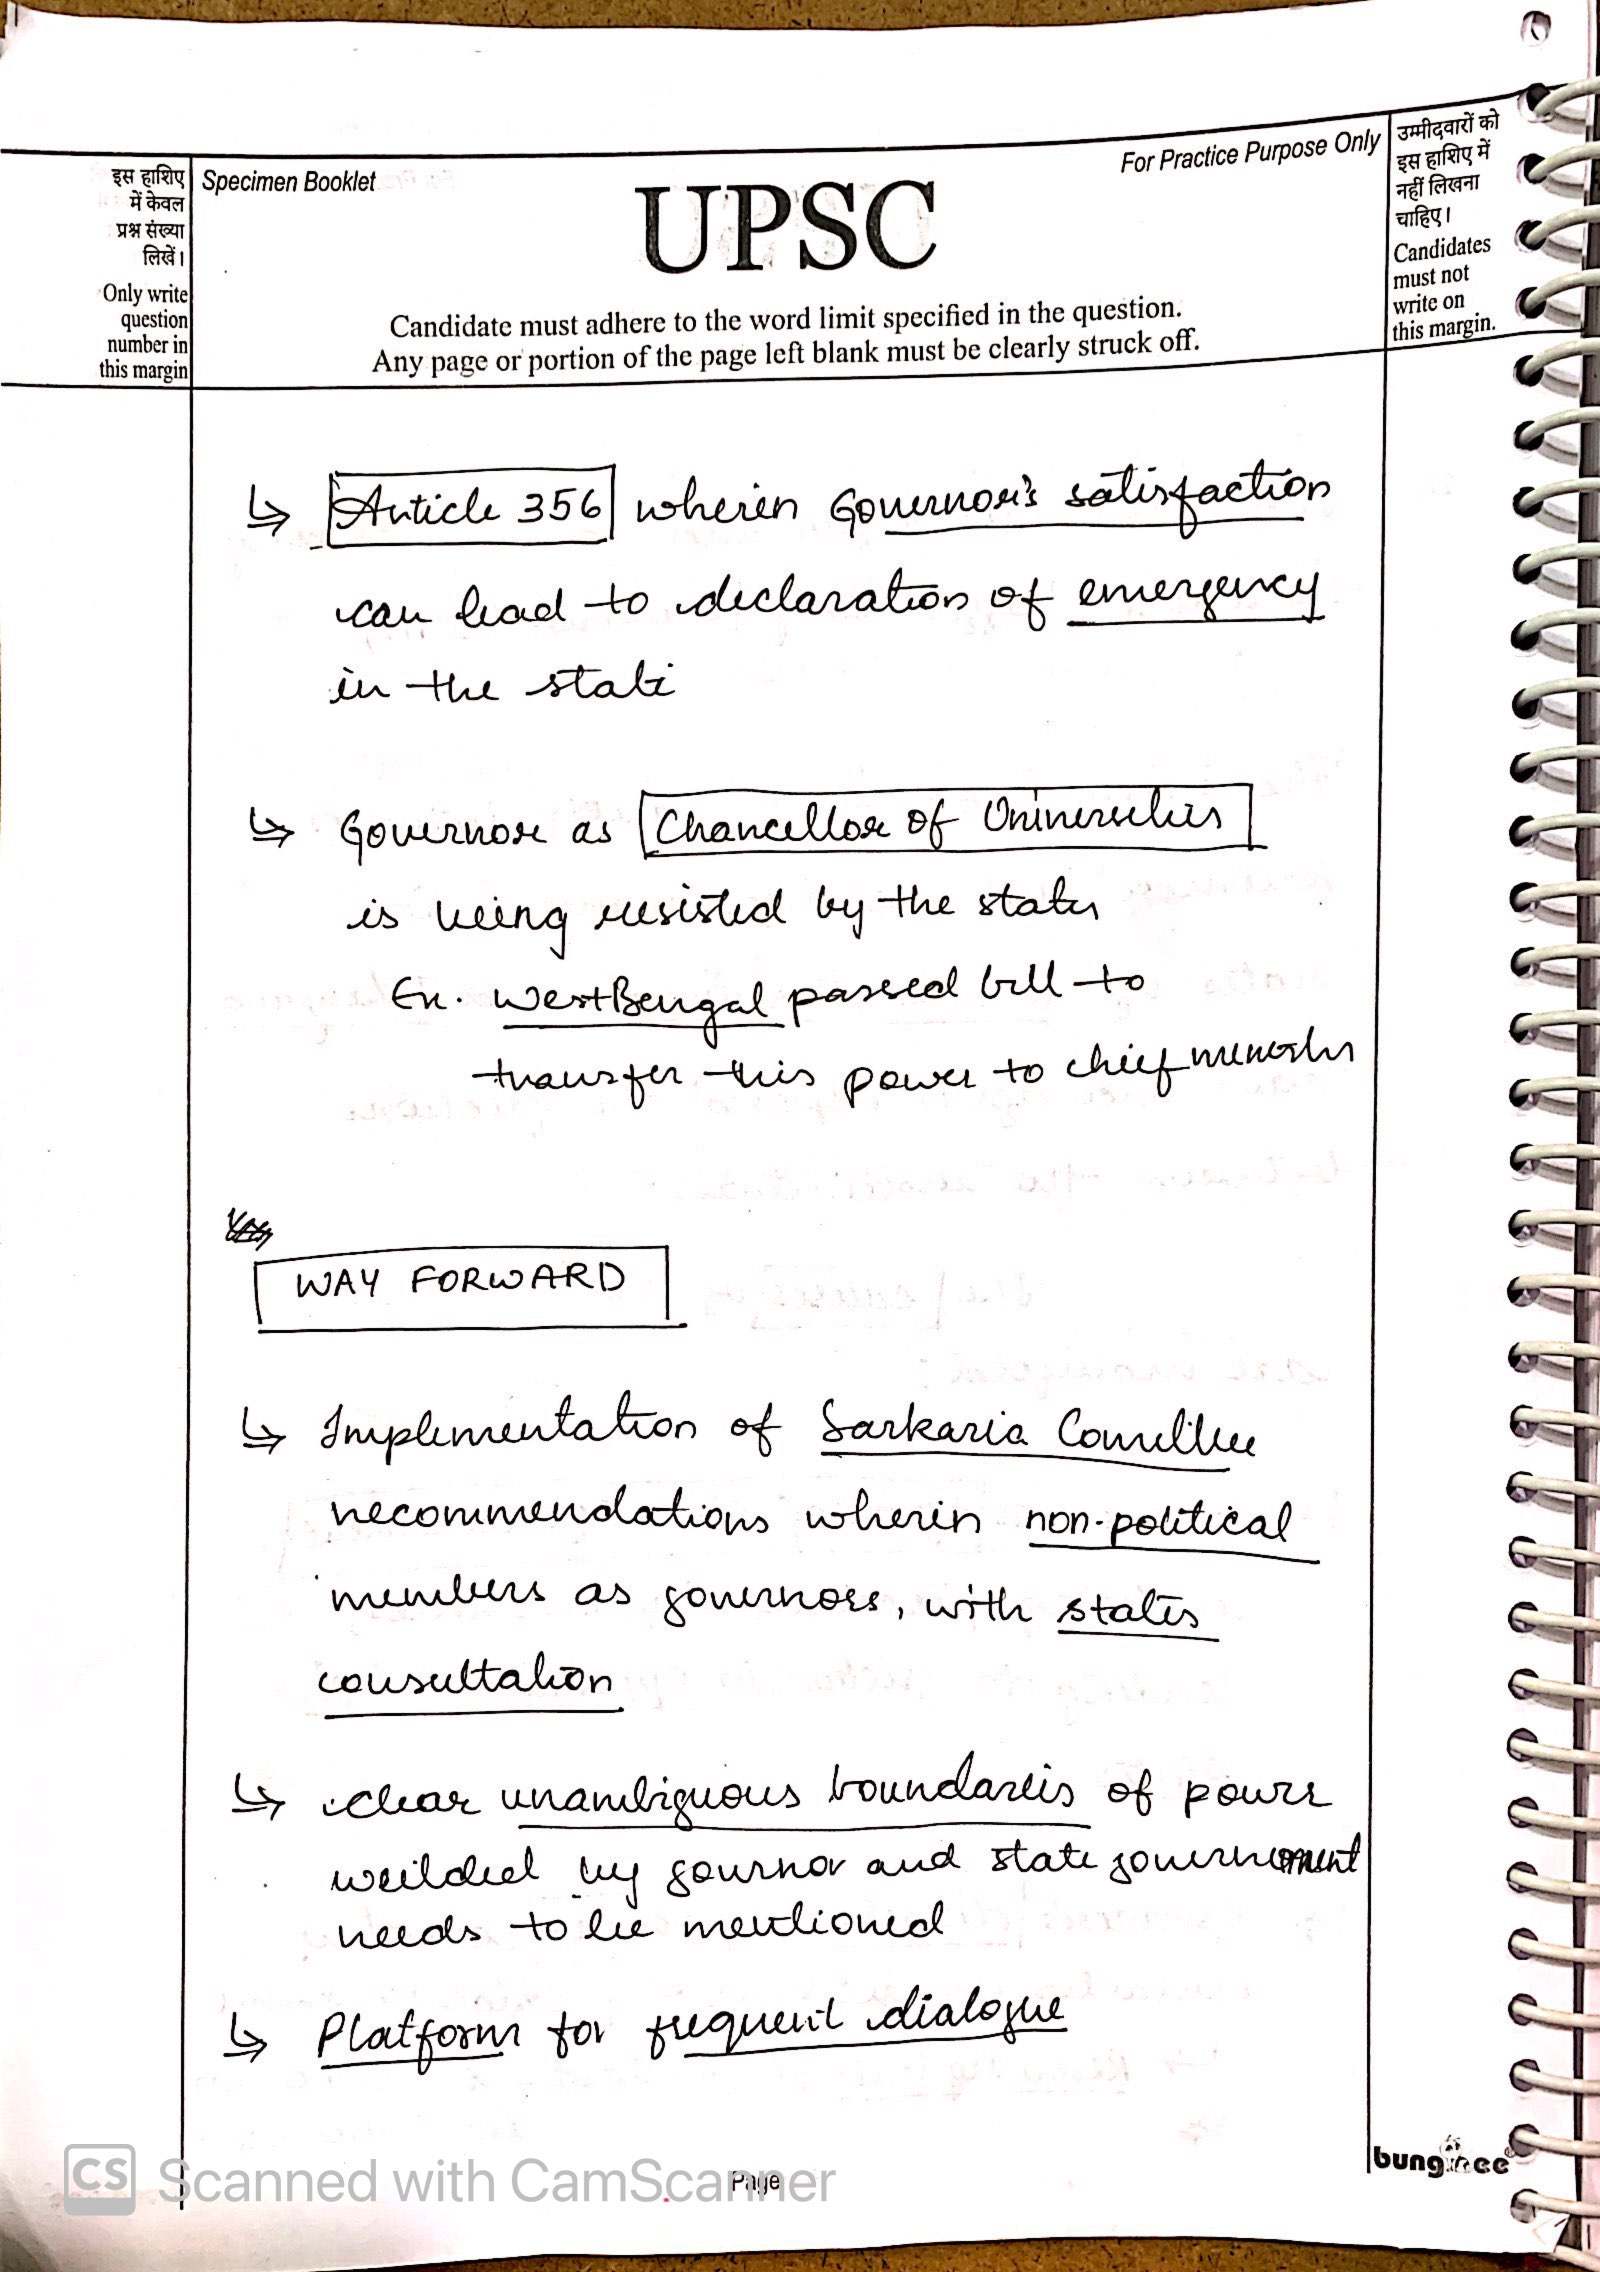 इस हाशिए
में केवल
प्रश्न संख्या
लिखें।
Only write
question
number in
this margin
Specimen Booklet
UPSC
For Practice Purpose Only
Candidate must adhere to the word limit specified in the question.
Any page or portion of the page left blank must be clearly struck off.
उम्मीदवारों को
इस हाशिए में
नहीं लिखना
चाहिए।
Candidates
must not
write on
this margin.
↳ Article 356 wherein Governor's satisfaction
can lead to declaration of emergency
in the state
↳ Governor as Chancellor of Universities
is being resisted by the states
Ex. West Bengal passed bill to
transfer this power to chief minister
WAY FORWARD
↳ Implementation of Sarkaria Committee
recommendations wherein non-political
members as governors, with states
consultation
↳ clear unambiguous boundaries of power
weilded by governor and state government
needs to be mentioned
↳ Platform for frequent dialogue
CS Scanned with CamScanner
Page